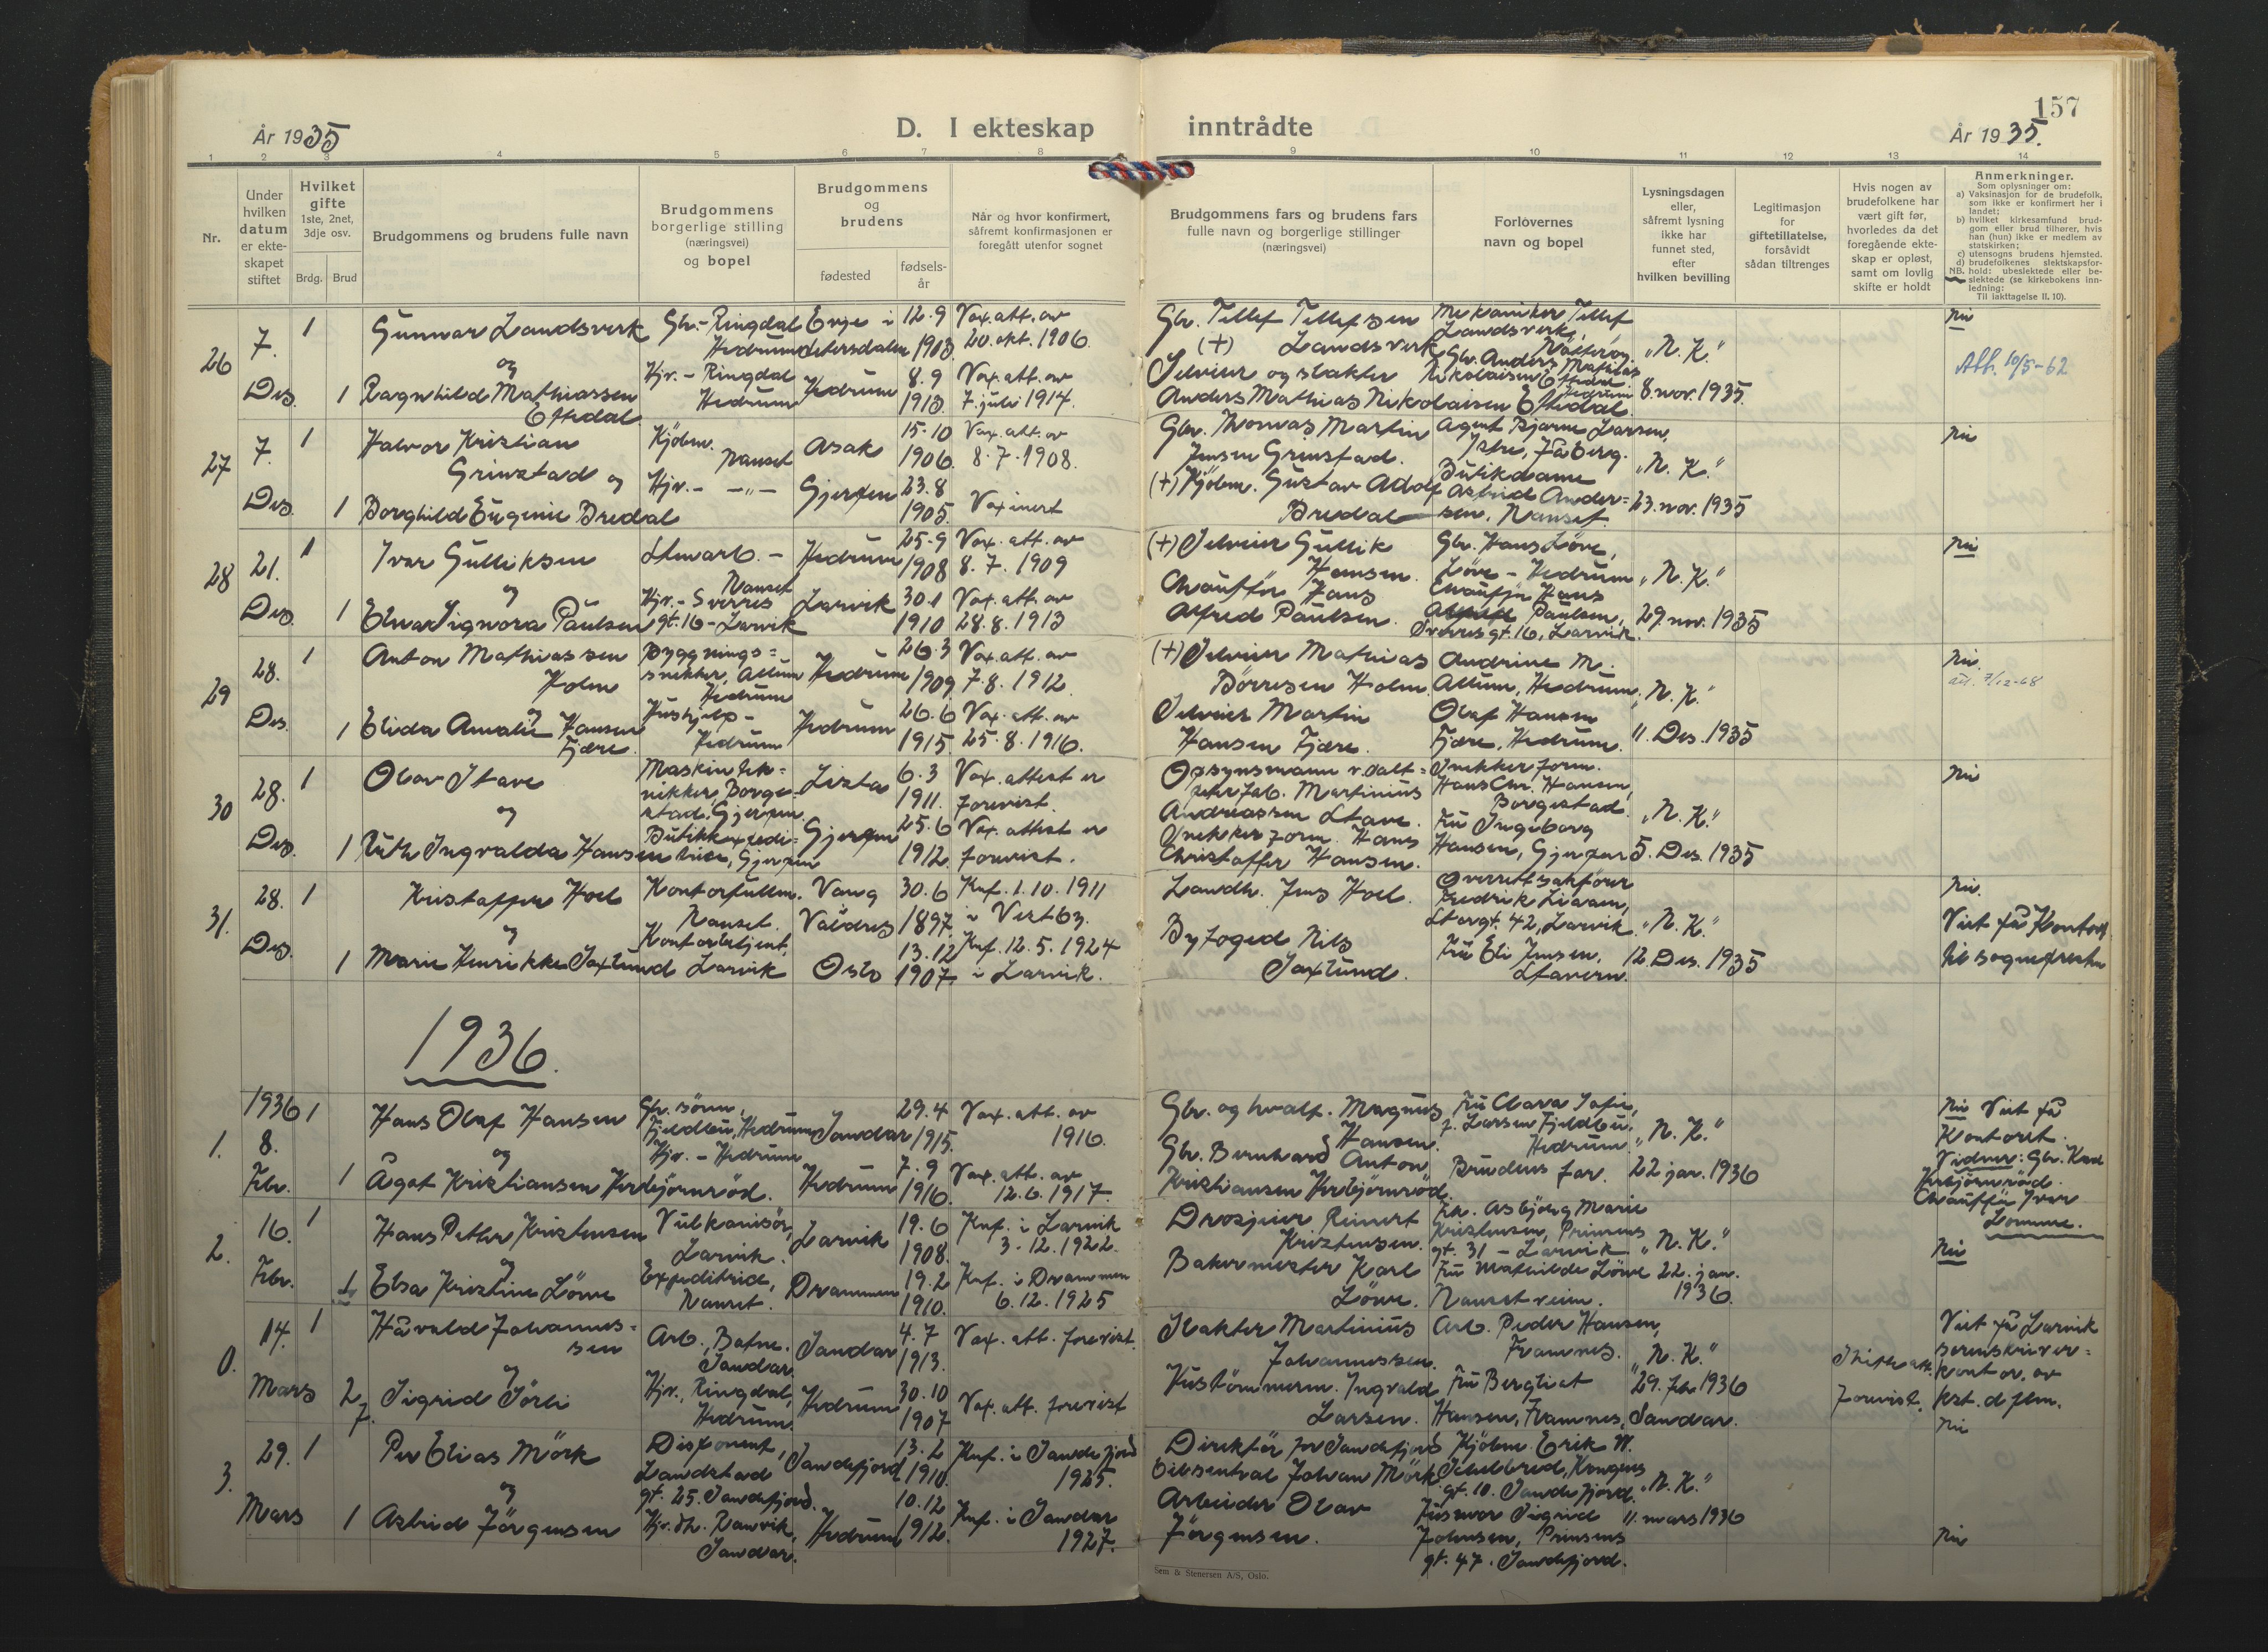 157
År 1935
D. I ekteskap inntrådte
År 1935.
1 2 3 4 5 6 7 8 9 10 11 12 13 14
Nr.
Under
hvilken
datum
er ekte-
skapet
stiftet
Hvilket
gifte
1ste, 2net,
3dje osv.
Brdg. Brud
Brudgommens og brudens fulle navn
Brudgommens
borgerlige stilling
(næringsvei)
og bopel
Brudgommens
og
brudens
fødested
fødsels-
år
Når og hvor konfirmert,
såfremt konfirmasjonen er
foregått utenfor sognet
Brudgommens fars og brudens fars
fulle navn og borgerlige stillinger
(næringsvei)
Forlovernes
navn og bopel
Lysningsdagen
eller,
såfremt lysning
ikke har
funnet sted,
efter
hvilken bevilling
Legitimasjon
for
giftetillatelse,
forsåvidt
sådan tiltrenges
Hvis nogen av
brudefolkene har
vært gift før,
hvorledes da det
foregående ekte-
skap er opløst,
samt om lovlig
skifte er holdt
Anmerkninger.
Som oplysninger om:
a) Vaksinasjon for de brudefolk,
som ikke er konfirmert her i
landet;
b) hvilket kirkesamfund brud-
gom eller brud tilhører, hvis
han (hun) ikke er medlem av
statskirken;
c) utensogns brudens hjemsted.
d) brudefolkenes slektskapsfor-
NB. hold: ubeslektede eller be-
slektede (se kirkebokens inn-
ledning:
Til iakttagelse II. 10).
26
7.
Des.
1
Gunnar Landsverk
og
1 Ragnhild Mathiassen
Eftedal
Gbr.- Ringdal
Hedrum
Hjv. - Ringdal
Hedrum
Evje i
Setersdalen
Hedrum
12.9
1903
8.9
1913
Vax. att. av
20. okt. 1906.
Vax. att. av
7. juli 1914.
Gbr. Tellef Tellefsen
(+) Landsverk
Selveier og slakter
Anders Mathias Nikolaisen Eftedal
Mekaniker Tellef
Landsverk,
Nøtterøy.
Gbr. Anders Mathias
Nikolaisen Eftedal
Hedrum
"N. K."
8. nov. 1935.
Nei
Att. 10/5-62
27
7.
Des.
1
Halvor Kristian
Grinstad og
1 Borghild Eugenie Bredal
Kjøbm.
Nanset
Hjv.- -"-
Asak
Gjerpen
15.10
1906.
23.8
1905.
Vax. att. av
8.7.1908.
Vaxinert
Gbr. Thomas Martin
Jensen Grinstad.
(+) Kjøbm. Gustav Adolf
Bredal
Agent Bjarne Larsen,
Istre, Fåberg.
Butikdame
Astrid Ander=
sen. Nanset
"N. K."
23. nov. 1935
Nei
28
21.
Des.
1
Ivar Gulliksen
og
1 Elna Signora Paulsen
Stenarb. -
Nanset
Hjv.- Sverres
gt. 16 - Larvik
Hedrum
Larvik
25-9
1908
30.1
1910
Vax. att. av
8.7.1909
Vax. att. av
28.8.1913
(+) Selveier Gullik
Hansen.
Chauffør Hans
Alfred Paulsen.
Gbr. Hans Løve,
Løve - Hedrum
Chauffør Hans
Alfred Paulsen,
Sverresgt. 16, Larvik.
"N. K."
29 nov. 1935
Nei
29
28.
Des.
1
Anton Mathiassen
Holm
og
1 Elida Amalie Hansen
Fjære
Byggnings=
snekker, Allum
Hedrum
Hushjelp -
Hedrum
Hedrum
Hedrum
26.3
1909
26.6
1915
Vax. att. av
7.8.1912.
Vax. att. av
25.8.1916.
(+) Selveier Mathias
Børresen Holm.
Selveier Martin
Hansen Fjære.
Andrine M.
Allum, Hedrum.
Olaf Hansen
Fjære, Hedrum.
"N. K."
11. Des. 1935
Nei.
att. 9/12-68
30
28.
Des.
1
Olav Stave
og
1 Ruth Ingvalda Hansen
Maskintek=
nikker, Borge=
stad, Gjerpen.
Butikkexpedi=
trise, Gjerpen
Lista
Gjerpen
6.3
1911.
25.6
1912.
Vax. attest er
forevist.
Vax. attest er
forevist.
Opsynsmann v. salt=
peter fab. Martinius
Andreassen Stave.
Snekker form. Hans
Christoffer Hansen.
Snekker form.
Hans Chr. Hansen,
Borgestad.
Fru Ingeborg
Hansen, Gjerpen
"N. K."
5. Des. 1935
Nei
31.
28.
Des.
1
Kristoffer Hoel
og
1 Marie Henrikke Saxlund
Kontorfullm.
Nanset.
Kontorbetjent,
Larvik
Vang
Valdres
Oslo
30.6
1897.
13.12
1907
Knf. 1.10.1911
i Vestby.
Knf. 12.5.1924
i Larvik.
Landh. Jens Hoel.
Byfoged Nils
Saxlund.
Overrettsakfører
Fredrik Liaaen,
Storgt. 42, Larvik.
Fru Eli Jensen.
Stavern.
"N. K."
12 Des. 1935
Nei.
Viet på Kontoret
til sogneprest
1936.
1.
1936
8.
Febr.
1
Hans Olaf Hansen
og
1 Ågot Kristiansen Herbjørnrød.
Gbr. sønn,
Fjeldbu, Hedrum
Hjv. - Hedrum
Sandar
Hedrum
29.4
1915.
7.9
1916.
Vax. att. av
1916.
Vax. att. av
12.6.1917.
Gbr. og hvalf. Magnus
Hansen.
Gbr. Bernhard Anton
Kristiansen Herbjørnrød.
Fru Clara Sofie,
f. Larsen Fjeldbu.
Hedrum
Brudens far.
"N. K."
22 jan. 1936
Nei Viet på
Kontoret.
Vidner: Gbr. Knd
Herbjørnrød.
Chauffør Ivar
Lomme.
2.
16.
Febr.
1
Hans Petter Kristensen
og
1 Elsa Kristine Löwe
Vulkanisør,
Larvik.
Expeditrise,
Nanset.
Larvik
Drammen
19.6
1908.
19.2
1910.
Knf. i Larvik
3.12.1922.
Knf. i Drammen
6.12.1925
Drosjeier Reinert
Kristensen.
Bakermester Karl
Löwe.
Frk. Asbjørg Marie
Kristensen, Prinsens
gt. 31 - Larvik
Fru Mathilde Löwe
Nansetveien.
"N. K."
22. jan.
1936.
Nei
0.
14.
Mars
1
Håvald Johannes=
sen
og
2 Sigrid Sörli
Arb., Bafne.
Sandar.
Hjv., Ringdal,
Hedrum.
Sandar
Hedrum
4.7
1913.
30.10
1907
Vax. att. forevist.
Vax. att. forevist
Slakter Martinius
Johannessen.
Hustømmerm. Ingvald
Larsen.
Arb. Peder Hansen,
Framnes.
Fru Bergliot
Hansen, Framnes, Sandar.
"N. K."
29. feb. 1936
Skifteatt.
forevist.
Viet på Larvik
sorenskriver=
kontor. av
kst. d. flm.
Nei
3.
29.
Mars
1
Per Elias Mörk
og
1 Astrid Jörgensen
Disponent,
Landstad
gt. 25. Sandefjord.
Hjv. dh. Ranvik,
Sandar.
Sandefjord
Hedrum
13.2
1910.
10.12
1912.
Knf. i Sandefjord
1925.
Knf. i Sandar
1927.
Direktør for Sandefjord
bilsentral Johan Mörk
Arbeider Olav
Jörgensen.
Kjøbm. Erik W.
Schelbred, Kongens
gt. 10. Sandefjord.
Husmor Sigrid
Johnsen, Prinsens
gt. 47. Sandefjord.
"N. K."
11. mars 1936
Nei
Sem & Stenersen A/S, Oslo.